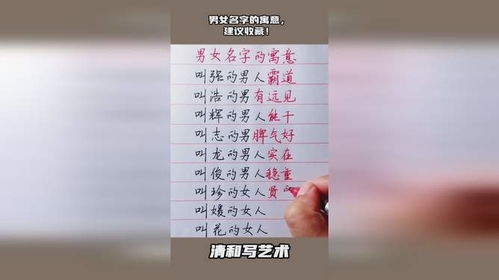 男女名字的寓意,
建议收藏!
男女名字的寓意
叫强的男人霸道
叫浩的男有远见
叫辉的男人能干
叫志的男脾气好
叫龙的男人实在
叫俊的男人稳重
叫珍的女人贤
叫媛的女人
叫花的女人
清和写艺术